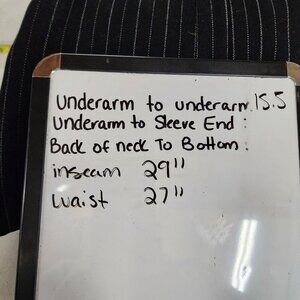 Underarm to underarm 15.5
Underarm to Sleeve End :
Back of neck To Bottom :
inseam 29"
waist 27"